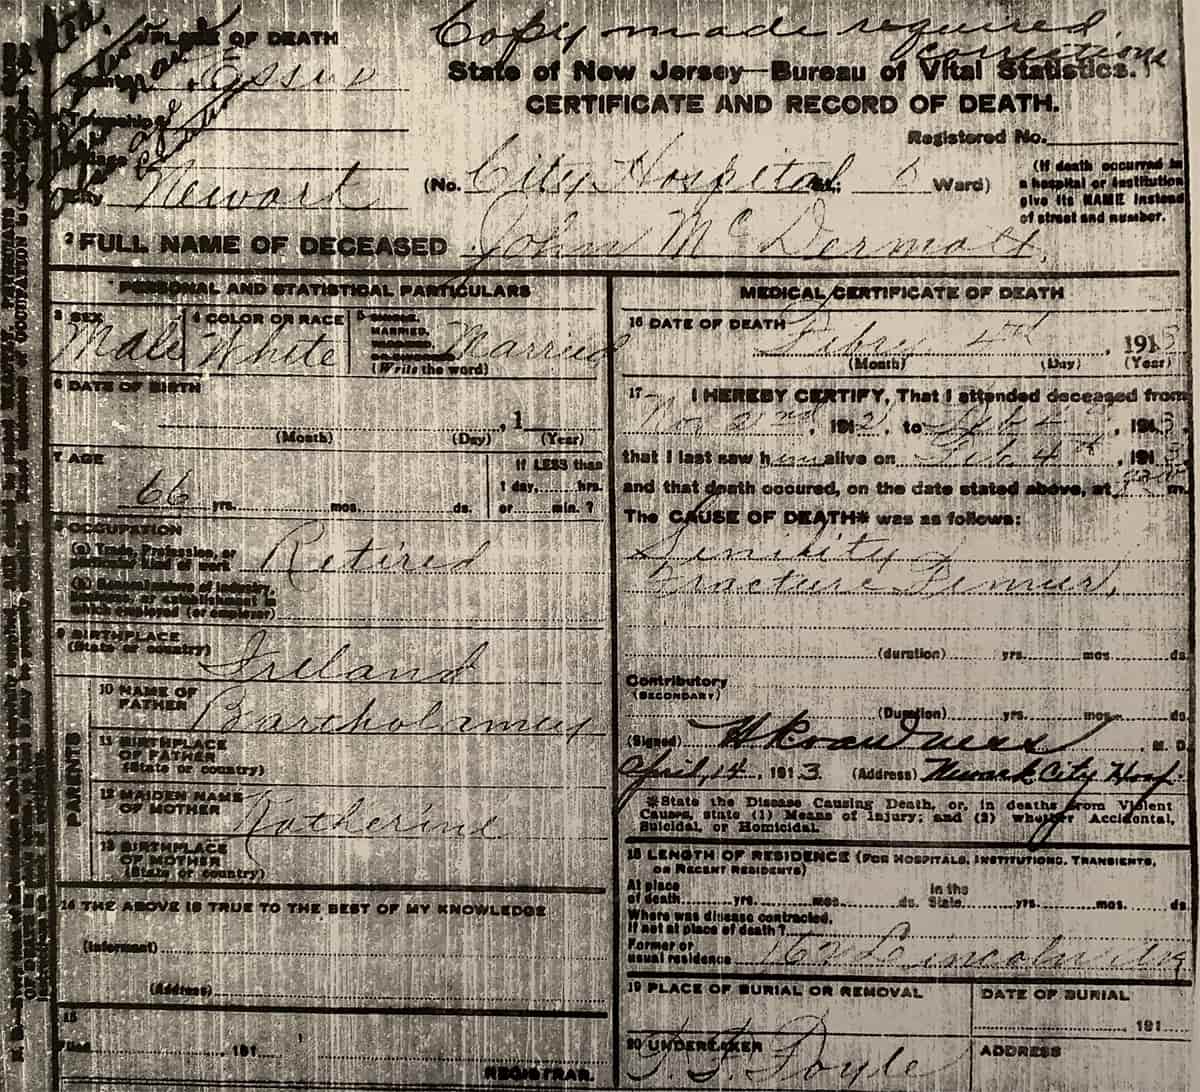 Copy made required
corrections
PLACE OF DEATH
Essex
State of New Jersey—Bureau of Vital Statistics.
CERTIFICATE AND RECORD OF DEATH.
Registered No.
Newark
(No. City Hospital St; 6 Ward)
(If death occurred in
a hospital or institution
give its NAME instead
of street and number.
2 FULL NAME OF DECEASED John McDermott.
PERSONAL AND STATISTICAL PARTICULARS
3 SEX
Male
4 COLOR OR RACE
White
5 SINGLE,
MARRIED,
Married
(Write the word)
6 DATE OF BIRTH
, 1
(Month) (Day) (Year)
7 AGE
66 yrs. mos. ds.
If LESS than
1 day, hrs.
or min. ?
8 OCCUPATION
(a) Trade, Profession, or
particular kind of work
Retired
(b) General nature of industry,
business, or establishment in
which employed (or employer)
9 BIRTHPLACE
(State or country)
Ireland
10 NAME OF
FATHER
Bartholamew
PARENTS
11 BIRTHPLACE
OF FATHER
(State or country)
12 MAIDEN NAME
OF MOTHER
Katherine
13 BIRTHPLACE
OF MOTHER
(State or country)
14 THE ABOVE IS TRUE TO THE BEST OF MY KNOWLEDGE
(Informant)
(Address)
15
Filed , 191
REGISTRAR.
MEDICAL CERTIFICATE OF DEATH
16 DATE OF DEATH
Febry 4th , 1913
(Month) (Day) (Year)
17 I HEREBY CERTIFY, That I attended deceased from
Nov 2nd , 1912, to Feb 4th , 1913,
that I last saw him alive on Feb 4th , 1913,
and that death occured, on the date stated above, at m.
The CAUSE OF DEATH* was as follows:
Senility
Fracture Femur,
(duration) yrs. mos. ds.
Contributory
(SECONDARY)
(Duration) yrs. mos. ds.
(Signed) , M. D.
April, 14 , 1913. (Address) Newark City Hosp.
*State the Disease Causing Death, or, in deaths from Violent
Causes, state (1) Means of Injury; and (2) whether Accidental,
Suicidal, or Homicidal.
18 LENGTH OF RESIDENCE (FOR HOSPITALS, INSTITUTIONS, TRANSIENTS,
OR RECENT RESIDENTS)
At place
of death yrs. mos. ds.
In the
State yrs. mos. ds.
Where was disease contracted,
If not at place of death?
Former or
usual residence
Lincoln
19 PLACE OF BURIAL OR REMOVAL
DATE OF BURIAL
, 191
20 UNDERTAKER
ADDRESS